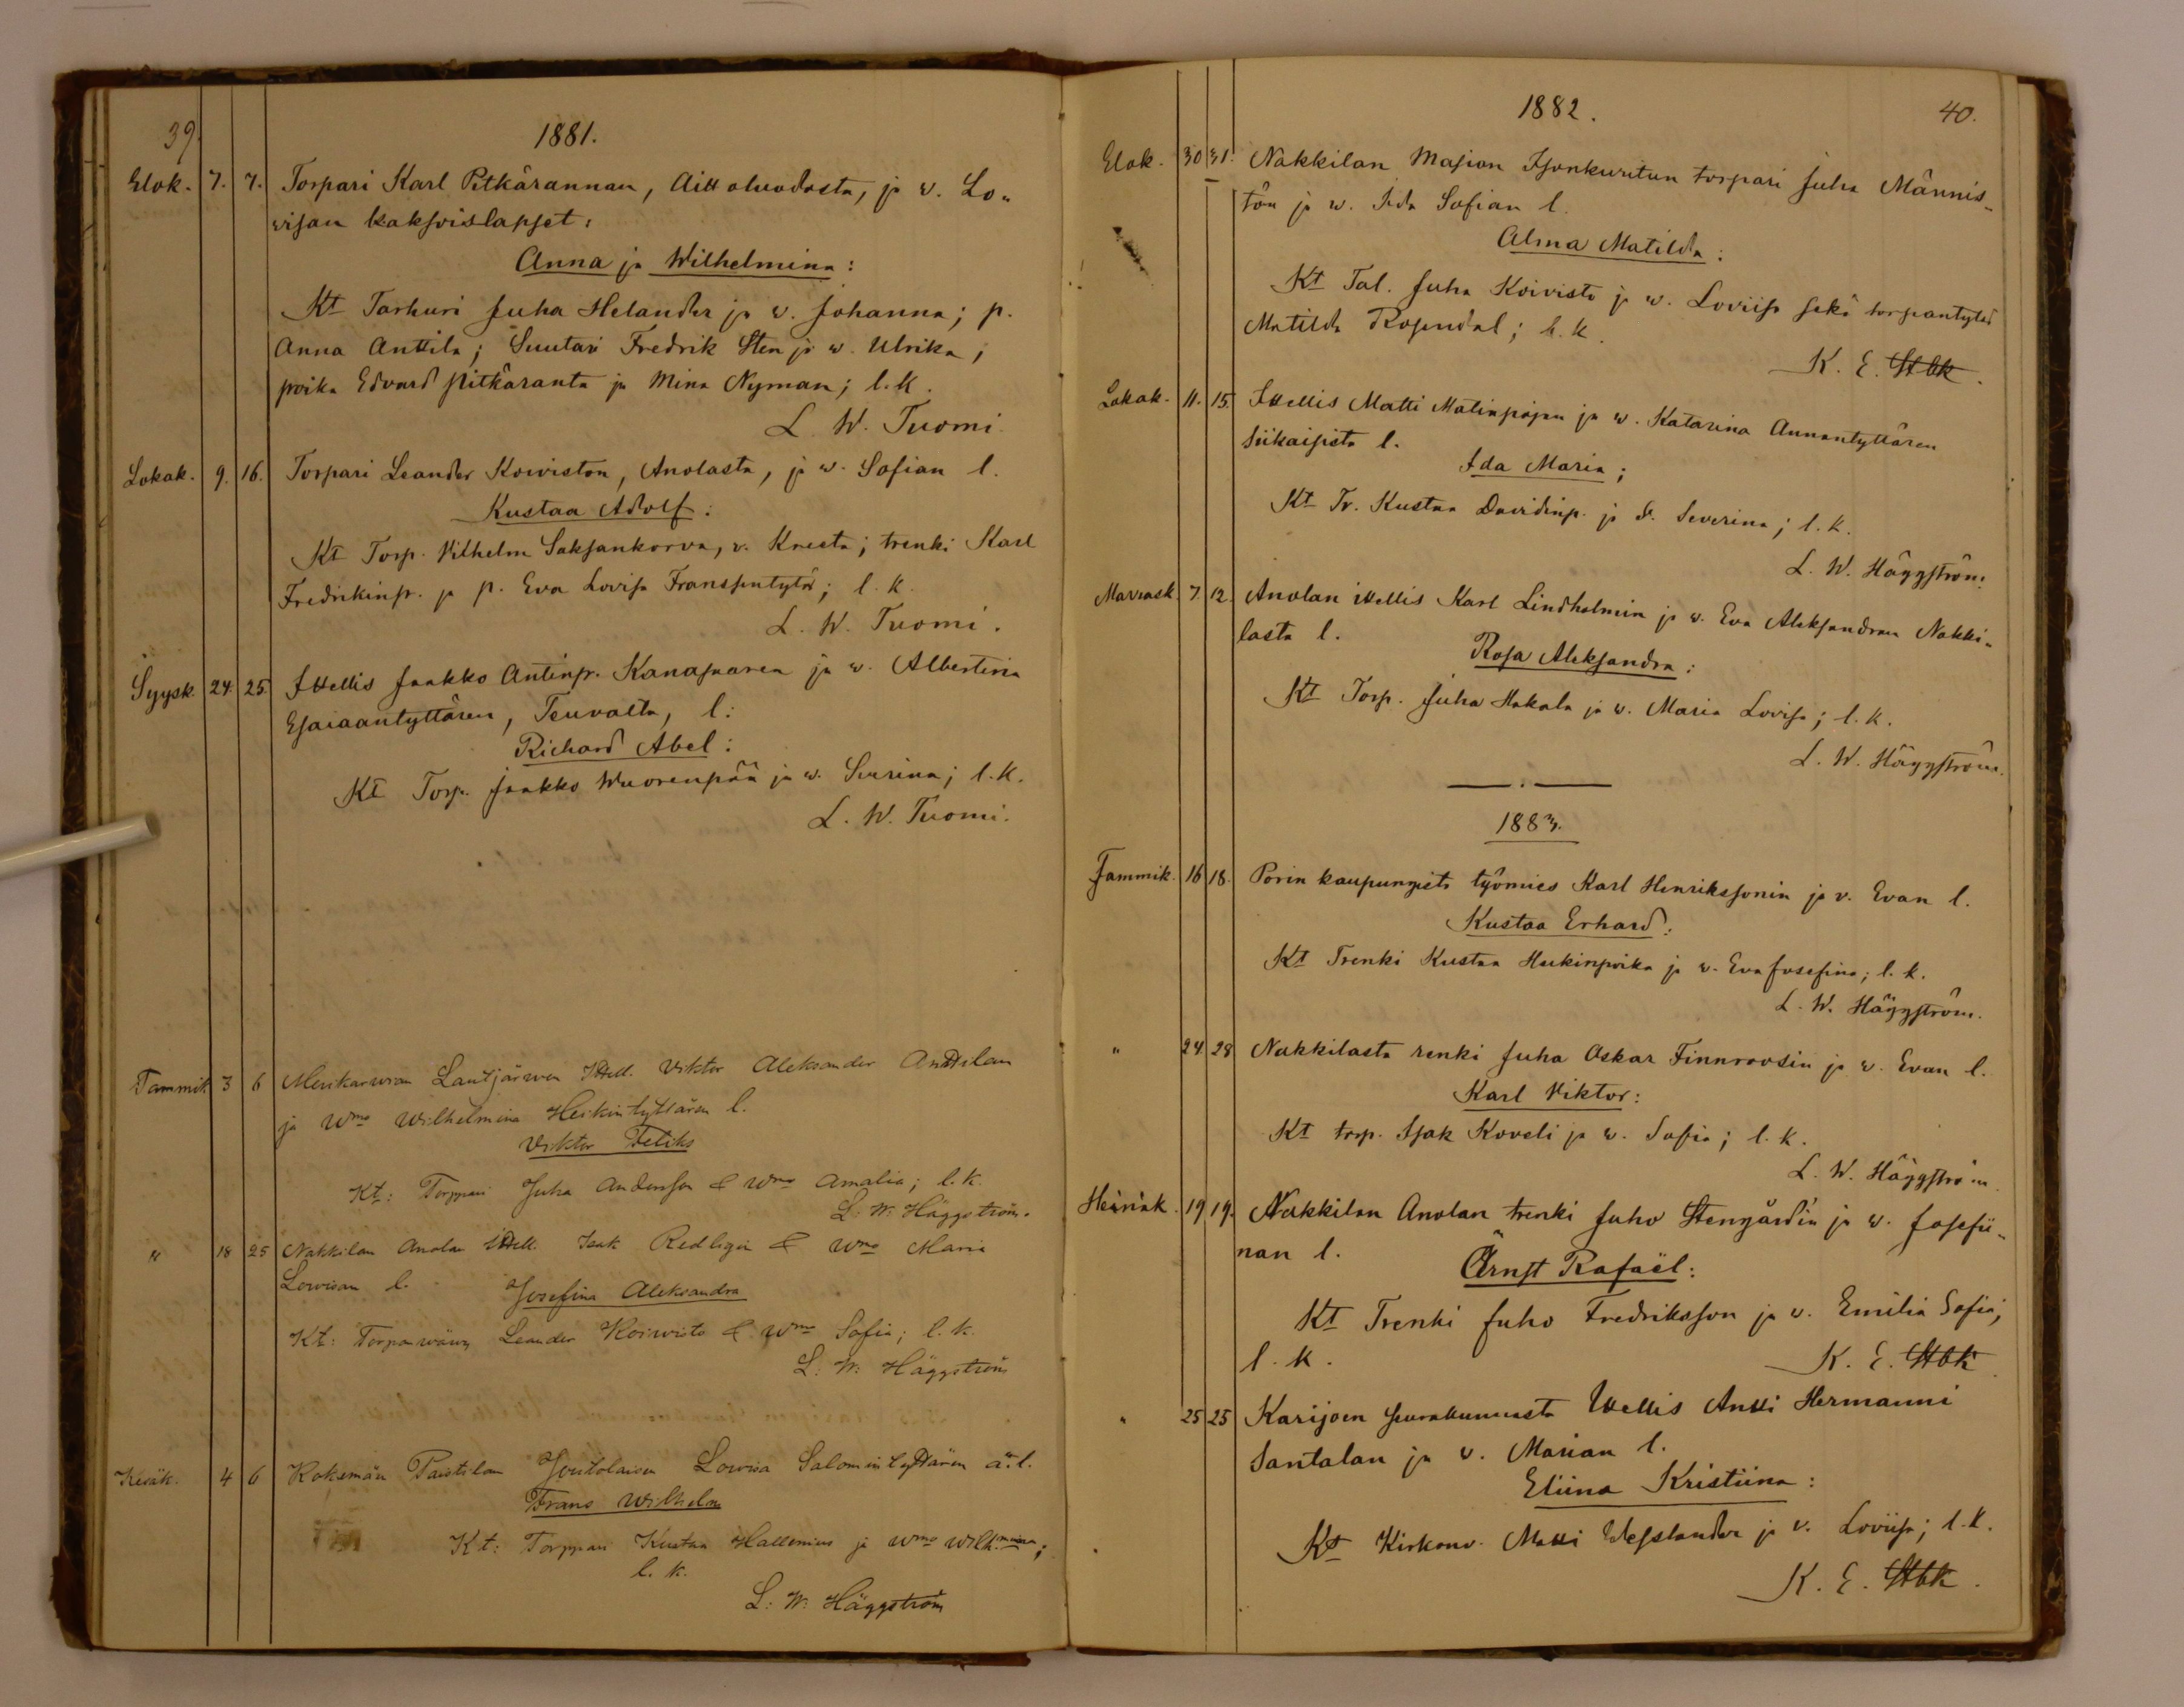 39.
1881.
Elok. 7. 7. Torpari Karl Pitkärannan, Aittoluodosta, ja v. Lo„
visan kaksoislapset:
Anna ja Wilhelmina:
Kt Tarhuri Juha Helander ja v. Johanna; p.
Anna Anttila; Suutari Fredrik Sten ja w. Ulrika;
poika Edvard Pitkäranta ja Mina Nyman; l.k.
L. W. Tuomi.
Lokak. 9. 16. Torpari Leander Koiviston, Anolasta, ja w. Sofian l.
Kustaa Adolf:
Kt Torp. Vilhelm Saksankorva, v. Kreeta; trenki Karl
Fredrikinp. ja p. Eva Lovisa Fransintytär; l. k.
L. W. Tuomi.
Syysk. 24. 25. Ittellis Jaakko Antinp. Kanasaaren ja w. Albertina
Esaiaantyttären, Teuvalta, l:
Richard Abel:
Kt Torp. Jaakko Wuorenpää ja w. Seerina; l.k.
L. W. Tuomi.
Tammik 3 6 Merikarwian Lautjärwen Ittell. Viktor Aleksander Anttilan
ja Wmo Wilhelmina Heikintyttären l.
Viktor Feliks
Kt: Torppari Juha Andersson & Wmo Amalia; l.k.
L: W: Häggström.
" 18 25 Nakkilan Anolan Ittell. Isak Redligin & Wmo Maria
Lowisan l.
Josefina Aleksandra
Kt: Torpanwäwy Leander Koiwisto & Wmo Sofia; l.k.
L: W: Häggström
Kesäk. 4 6 Kokemän Paistilan Lowisa Salomintyttären ä: l.
Frans Wilhelm
Kt: Torppari Kustaa Hallenius ja Wmo Wilh:mina;
l. k.
L: W: Häggström
1882.
40.
Elok. 30 31. Nakkilan Masian Isonkuritun torpari Juha Männis„
tön ja w. Iida Sofian l.
Alma Matilda:
Kt Tal. Juha Koivisto ja w. Loviisa sekä torpantytär
Matilda Rosendal; l. k.
K. E. Stbk.
Lokak. 11. 15. Ittellis Matti Matinpojan ja w. Katarina Annantyttären
Siikaisista l.
Ida Maria;
Kt Tr. Kustaa Davidinp. ja v. Severina; l. k.
L. W. Häggström.
Marrask. 7. 12. Anolan ittellis Karl Lindholmin ja w. Eva Aleksandran Nakki„
lasta l.
Rosa Aleksandra:
Kt Torp. Juha Hakala ja w. Maria Lovisa; l. k.
L. W. Häggström.
1883.
Tammik. 16 18. Porin kaupungista työmies Karl Henrikssonin ja v. Evan l.
Kustaa Erhard:
Kt Trenki Kustaa Heikinpoika ja w. Eva Josefina; l. k.
L. W. Häggström.
" 24. 28 Nakkilasta renki Juha Oskar Finnroosin ja w. Evan l.
Karl Viktor:
Kt torp. Isak Koveli ja w. Sofia; l. k.
L. W. Häggström.
Heinäk. 19 19. Nakkilan Anolan trenki Juho Stengårdin ja w. Josefii„
nan l.
Ärnst Rafaël:
Kt Trenki Juho Fredriksson ja v. Emilia Sofia;
l. k.
K. E. Stbk
" 25 25 Karijoen seurakunnasta Ittellis Antti Hermanni
Santalan ja v. Marian l.
Eliina Kristiina:
Kt Kirkonv. Matti Wesslander ja v. Loviisa; l. k.
K. E. Stbk.